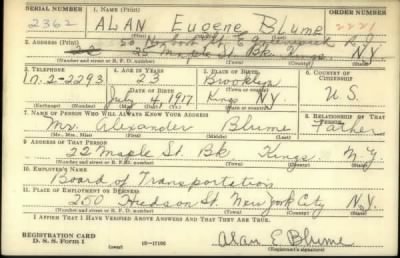 SERIAL NUMBER 1. NAME (Print) ORDER NUMBER
2362 ALAN Eugene Blume 2221
2. ADDRESS (Print)
22 Maple St. Bk. Kings N.Y.
(Number and street or R. F. D. number) (Town) (County) (State)
3. TELEPHONE 4. AGE IN YEARS 5. PLACE OF BIRTH 6. COUNTRY OF CITIZENSHIP
In. 2-2293 23 Brooklyn
DATE OF BIRTH (Town or county)
July 4 1917 Kings N.Y. U S.
(Exchange) (Number) (Mo.) (Day) (Yr.) (State or country)
7. NAME OF PERSON WHO WILL ALWAYS KNOW YOUR ADDRESS 8. RELATIONSHIP OF THAT PERSON
Mr. Alexander Blume Father
(Mr., Mrs., Miss) (First) (Middle) (Last)
9. ADDRESS OF THAT PERSON
22 Maple St. Bk Kings N.Y.
(Number and street or R. F. D. number) (Town) (County) (State)
10. EMPLOYER'S NAME
Board of Transportation
11. PLACE OF EMPLOYMENT OR BUSINESS
250 Hudson St. New York City N.Y.
(Number and street or R. F. D. number) (Town) (County) (State)
I AFFIRM THAT I HAVE VERIFIED ABOVE ANSWERS AND THAT THEY ARE TRUE.
REGISTRATION CARD
D. S. S. Form 1 (over) Alan E. Blume